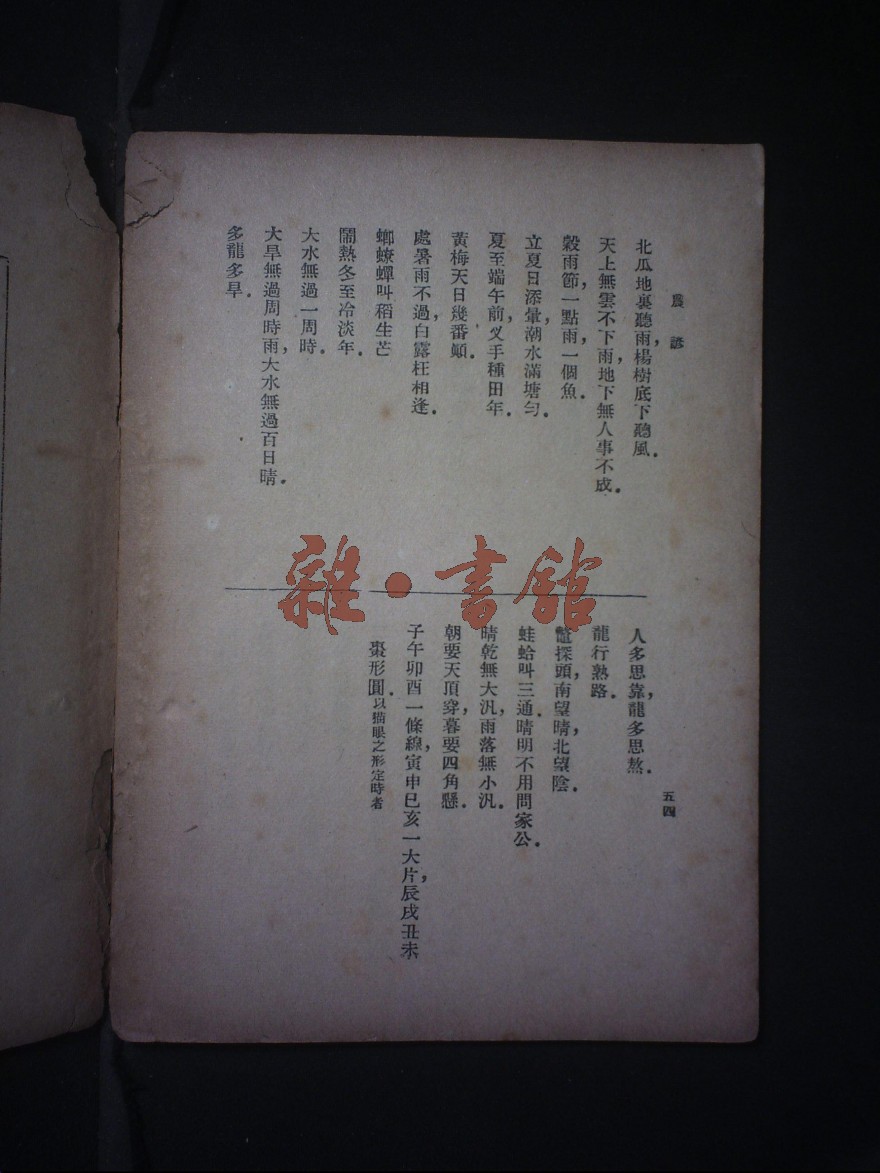 農諺
北瓜地裏聽雨，楊樹底下聽風．
天上無雲不下雨，地下無人事不成．
穀雨節，一點雨，一個魚．
立夏日添暈，潮水滿塘勻．
夏至端午前，叉手種田年．
黃梅天日幾番顛．
處暑雨不過，白露枉相逢．
螂蟟蟬叫稻生芒
鬧熱冬至冷淡年．
大水無過一周時．
大旱無過周時雨，大水無過百日晴．
多龍多旱．
五四
人多思靠，龍多思熬．
龍行熟路．
鼈探頭，南望晴，北望陰．
蛙蛤叫三通，晴明不用問家公．
晴乾無大汛，雨落無小汛．
朝要天頂穿，暮要四角懸．
子午卯酉一條線，寅申巳亥一大片，辰戌丑未
棗形圓．以猫眼之形定時者
雜·書館